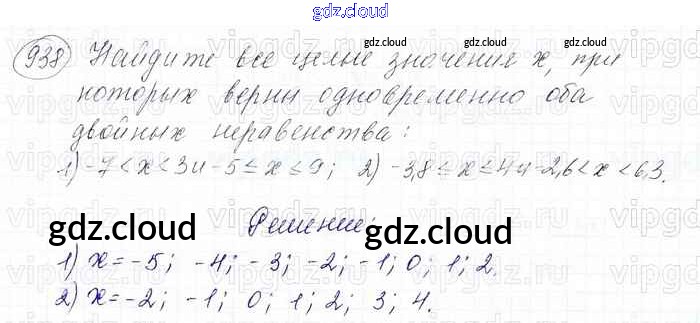 gdz.cloud
938 Найдите все целые значения x, при
gdz.cloud gdz.cloud
которых верны одновременно оба
двойных неравенства:
1) -7 < x < 3 и -5 ≤ x ≤ 9; 2) -3,8 ≤ x ≤ 4 и -2,6 < x < 6,3.
Решение:
gdz.cloud gdz.cloud
1) x = -5; -4; -3; -2; -1; 0; 1; 2.
2) x = -2; -1; 0; 1; 2; 3; 4.
gdz.cloud gdz.cloud